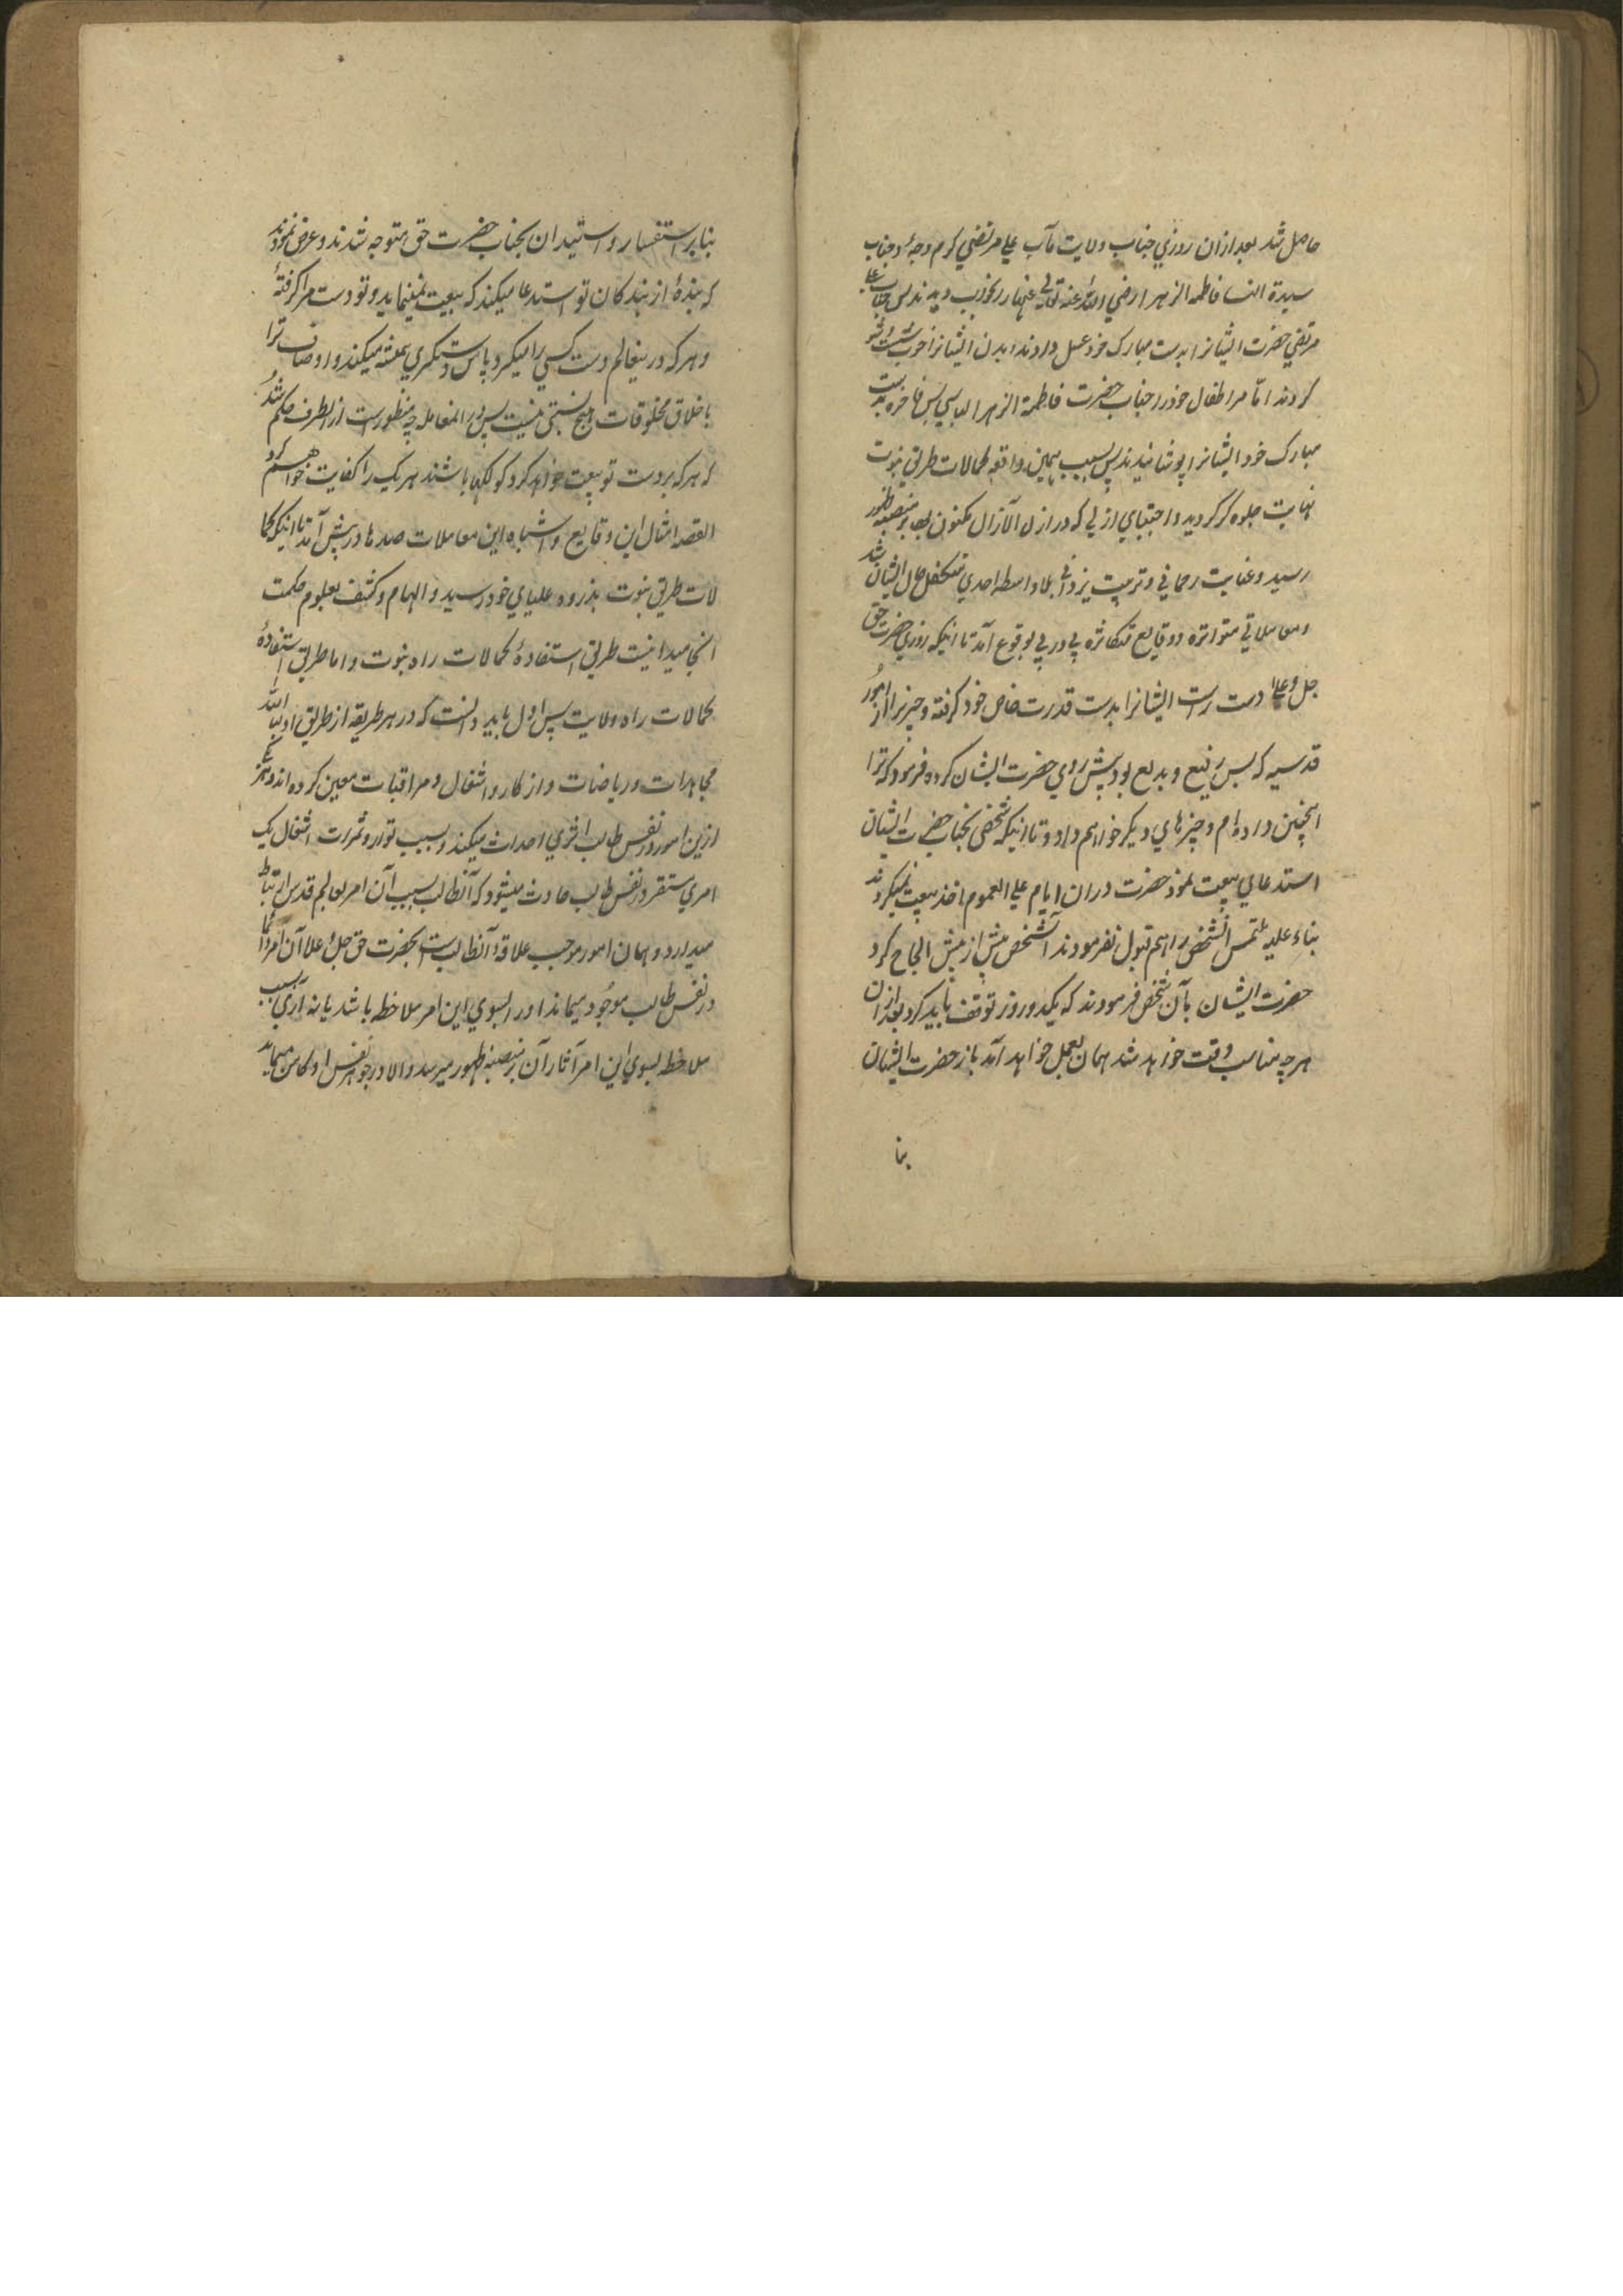 حاصل شد بعد ازان روزي جناب ولايت مآب علي مرتضي كرم وجهه و جناب
سيدة النسا فاطمه الزهرا رضي الله عنه تعالي عنها را بخواب ديدند پس جناب علي
مرتضي حضرت ايشانرا بدست مبارك خود غسل دادند و بدن ايشانرا خوب شست و شو
كردند مانند مر اطفال خود را و جناب حضرت فاطمة الزهرا لباسي بس فاخره بدست
مبارك خود ايشانرا پوشانيدند پس بسبب همين واقعه كمالات طريق نبوت
نهايت جلوه گر گرديد و اجتباي ازلي كه در ازل الآزال مكنون بود بر منصبه ظهور
رسيد و عنايت رحماني و تربيت يزداني بلا واسطه احدي متكفل حال ايشان شد
و معاملاتي متواتره و وقايع متكاثره پي در پي بوقوع آمد تا اينكه روزي حضرت حق
جل و علا دست راست ايشانرا بدست قدرت خاص خود گرفته و چيزيرا از امور
قدسيه كه بس رفيع و بديع بود پيش روي حضرت ايشان كرده فرمود كه ترا
اينچنين داده ام و چيزهاي ديگر خواهم داد و تا اينكه شخصي بجناب حضرت ايشان
استدعاي بيعت نمود حضرت دران ايام علي العموم اخذ بيعت نميكردند
بناء عليه ملتمس آنشخص را هم قبول نفرمودند آنشخص بيش از بيش الحاح كرد
حضرت ايشان بآن شخص فرمودند كه يكدو روز توقف بايد كرد بعد ازان
هرچه مناسب وقت خواهد شد همان بعمل خواهد آمد باز حضرت ايشان
بنا
بنابر استفسار و استيدان بجناب حضرت حق متوجه شدند و عرض نمودند
كه بندهٔ از بندگان تو استدعا ميكند كه بيعت بمن نمايد و تو دست مرا گرفتهٔ
و هر كه درينعالم دست كسي را ميگيرد پاس دستگيري هميشه ميكند و اوصاف ترا
باخلاق مخلوقات هيچ نسبتي نيست پس درين معامله چه منظورست ازانطرف حكم شد
كه هر كه بر دست تو بيعت خواهد كرد گو لكها باشند هر يك را كفايت خواهم كرد
القصه امثال اين وقايع و اشباه اين معاملات صدها در پيش آمد تا اينكه كما
لات طريق نبوت بذروه علياي خود رسيد و الهام و كشف بعلوم حكمت
انجاميد اينست طريق استفادهٔ كمالات راه نبوت و اما طريق استفادهٔ
كمالات راه ولايت پس اول بايد دانست كه در هر طريقه از طريق اولياء الله
مجاهدات و رياضات و اذكار و اشغال و مراقبات معين كرده اند و هر يكي
ازين امور در نفس طالب اثري احداث ميكند و بسبب توارد ثمرات اشغال يك
امري مستقر در نفس طالب حادث ميشود كه آنطالب بسبب آن امر بعالم قدس ارتباط
ميدارد و همان امور موجب علاقهٔ آنطالب ست بحضرت حق جل و علا آن امر دائما
در نفس طالب موجود ميماند او را بسوي اين امر ملاحظه باشد يا نه آري بسبب
ملاحظه بسوي اين امر آثار آن بر منصبه ظهور ميرسد و الا در جوهر نفس او كامن ميماند